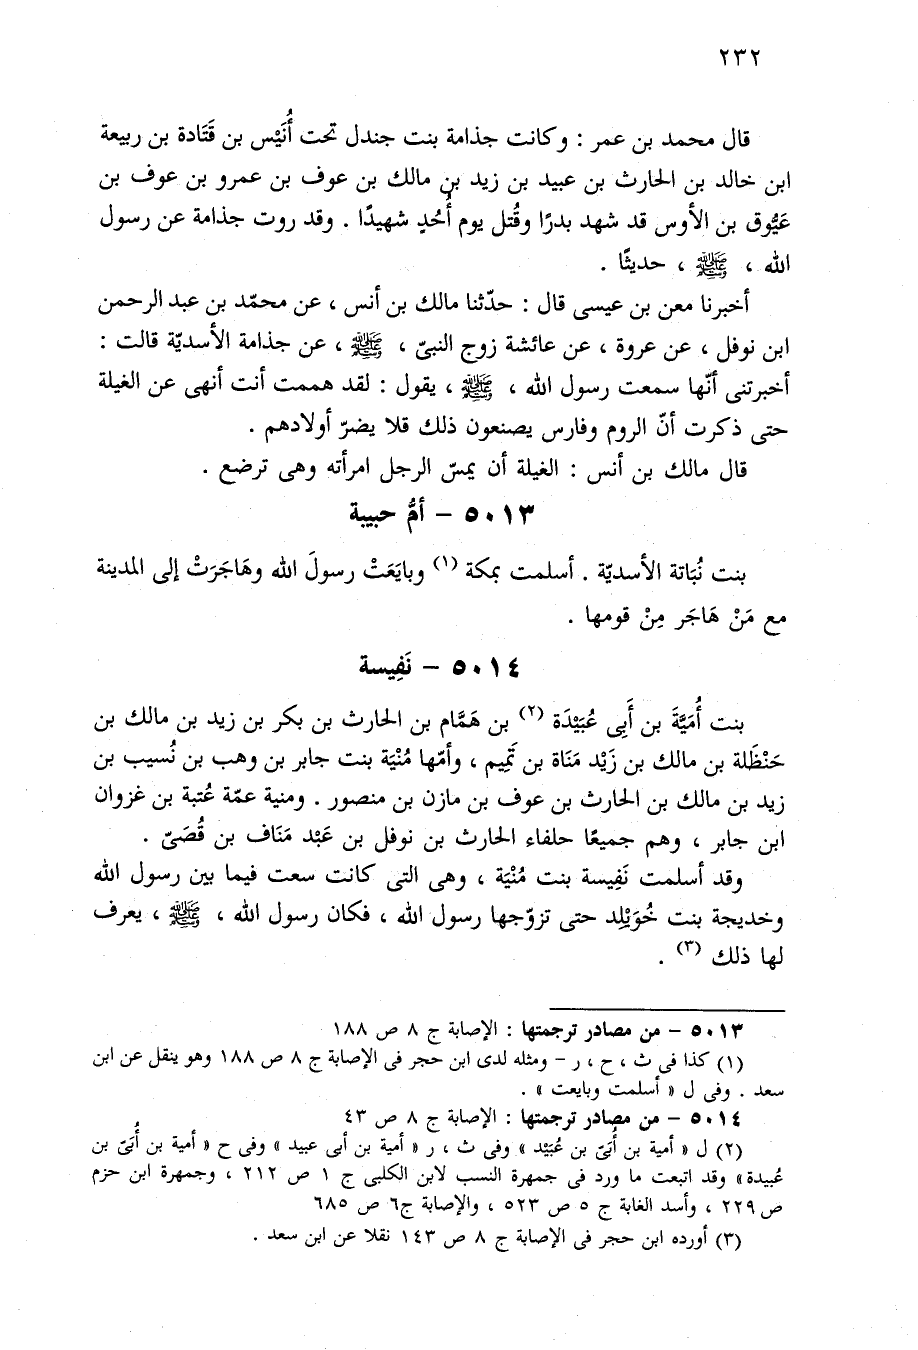 ٢٣٢
قال محمد بن عمر : وكانت جذامة بنت جندل تحت أُنَيْس بن قَتَادة بن ربيعة
ابن خالد بن الحارث بن عبيد بن زيد بن مالك بن عوف بن عمرو بن عوف بن
عَيُّوق بن الأوس قد شهد بدرًا وقُتل يوم أُحُدٍ شهيدًا . وقد روت جذامة عن رسول
الله ، ﷺ ، حديثًا .
أخبرنا معن بن عيسى قال : حدّثنا مالك بن أنس ، عن محمّد بن عبد الرحمن
ابن نوفل ، عن عروة ، عن عائشة زوج النبىّ ، ﷺ ، عن جذامة الأسديّة قالت :
أخبرتنى أنّها سمعت رسول الله ، ﷺ ، يقول : لقد هممت أنت أنهى عن الغيلة
حتى ذكرت أنّ الروم وفارس يصنعون ذلك فلا يضرّ أولادهم .
قال مالك بن أنس : الغيلة أن يمسّ الرجل امرأته وهى ترضع .
٥٠١٣ – أمُّ حبيبة
بنت نُبَاتة الأسديّة . أسلمت بمكة (١) وبايَعَتْ رسولَ الله وهَاجَرَتْ إلى المدينة
مع مَنْ هَاجَر مِنْ قومها .
٥٠١٤ – نَفِيسة
بنت أُمَيَّةَ بن أَبِى عُبَيْدَة (٢) بن هَمَّام بن الحارث بن بكر بن زيد بن مالك بن
حَنْظَلة بن مالك بن زَيْد مَنَاة بن تَمِيم ، وأمّها مُنْيَة بنت جابر بن وهب بن نُسيب بن
زيد بن مالك بن الحارث بن عوف بن مازن بن منصور . ومنية عمّة عُتبة بن غزوان
ابن جابر ، وهم جميعًا حلفاء الحارث بن نوفل بن عَبْد مَنَاف بن قُصَىّ .
وقد أسلمت نَفِيسة بنت مُنْيَة ، وهى التى كانت سعت فيما بين رسول الله
وخديجة بنت خُوَيْلِد حتى تزوّجها رسول الله ، فكان رسول الله ، ﷺ ، يعرف
لها ذلك (٣) .
٥٠١٣ – من مصادر ترجمتها : الإصابة ج ٨ ص ١٨٨
(١) كذا فى ث ، ح ، ر – ومثله لدى ابن حجر فى الإصابة ج ٨ ص ١٨٨ وهو ينقل عن ابن
سعد . وفى ل « أسلمت وبايعت » .
٥٠١٤ – من مصادر ترجمتها : الإصابة ج ٨ ص ٤٣
(٢) ل « أمية بن أُبَىّ بن عُبَيْد » وفى ث ، ر « أمية بن أبى عبيد » وفى ح « أمية بن أُبَىّ بن
عُبيدة » وقد اتبعت ما ورد فى جمهرة النسب لابن الكلبى ج ١ ص ٢١٢ ، وجمهرة ابن حزم
ص ٢٢٩ ، وأسد الغابة ج ٥ ص ٥٢٣ ، والإصابة ج٦ ص ٦٨٥
(٣) أورده ابن حجر فى الإصابة ج ٨ ص ١٤٣ نقلا عن ابن سعد .